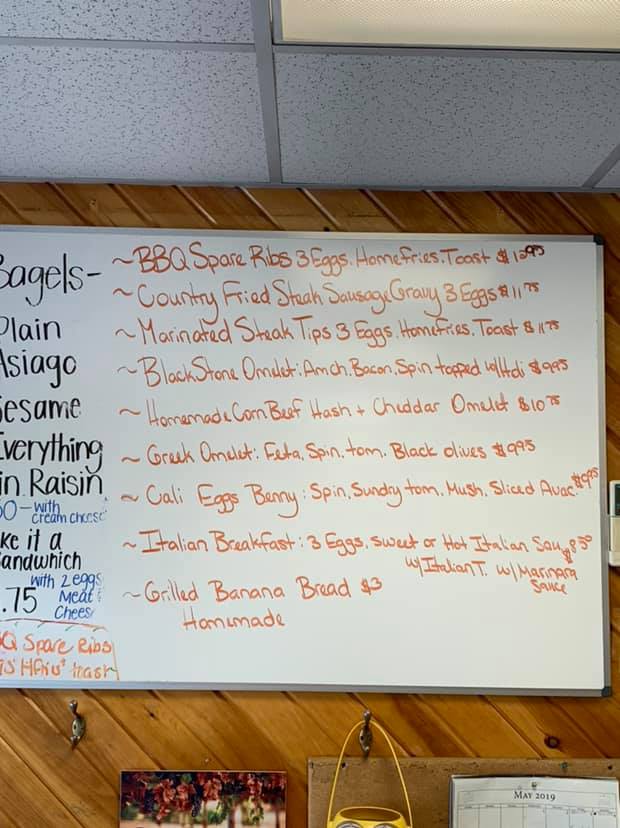 Bagels-
Plain
Asiago
Sesame
Everything
in Raisin
with
cream cheese
ke it a
andwhich
with 2 eggs
.75 Meat &
Chees
Q Spare Ribs
toast
~BBQ Spare Ribs 3 Eggs. Homefries. Toast $12.95
~Country Fried Steak Sausage Gravy 3 Eggs $11.75
~Marinated Steak Tips 3 Eggs. Homefries. Toast $11.75
~BlackStone Omelet: Am ch. Bacon. Spin topped w/Holi $9.95
~Homemade Corn Beef Hash + Cheddar Omelet $10.75
~Greek Omelet: Feta. Spin. tom. Black olives $9.95
~Cali Eggs Benny: Spin. Sundry tom. Mush. Sliced Avac. $9.95
~Italian Breakfast: 3 Eggs. sweet or Hot Italian Saus
w/Italian T. w/Marinara
Sauce
~Grilled Banana Bread $3
Homemade
MAY 2019